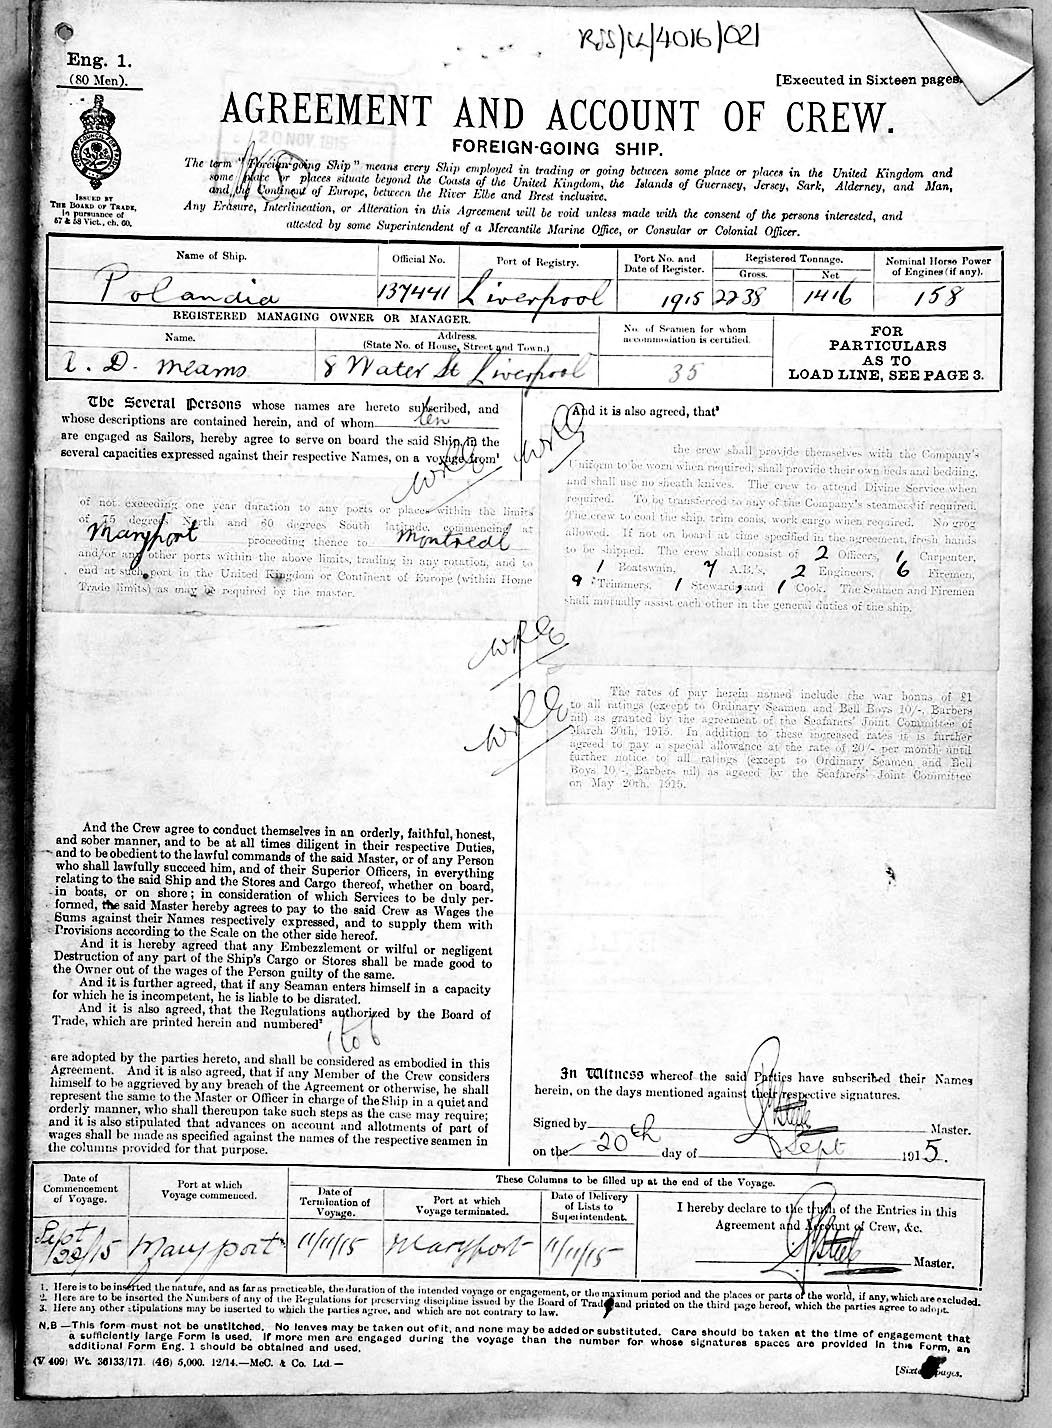 RSS/CL/4016/021
Eng. 1.
(80 Men).
[Executed in Sixteen pages.
AGREEMENT AND ACCOUNT OF CREW.
20 NOV 1915
FOREIGN-GOING SHIP.
ISSUED BY
THE BOARD OF TRADE,
in pursuance of
57 & 58 Vict., ch. 60.
The term "Foreign-going Ship" means every Ship employed in trading or going between some place or places in the United Kingdom and
some place or places situate beyond the Coasts of the United Kingdom, the Islands of Guernsey, Jersey, Sark, Alderney, and Man,
and the Continent of Europe, between the River Elbe and Brest inclusive.
Any Erasure, Interlineation, or Alteration in this Agreement will be void unless made with the consent of the persons interested, and
attested by some Superintendent of a Mercantile Marine Office, or Consular or Colonial Officer.
Name of Ship. Official No. Port of Registry. Port No. and Date of Register. Registered Tonnage. Gross. Net Nominal Horse Power of Engines (if any).
Polandia 137441 Liverpool 1915 2238 1416 158
REGISTERED MANAGING OWNER OR MANAGER.
Name. Address. (State No. of House, Street and Town.) No. of Seamen for whom accommodation is certified.
D. Mearns 8 Water St Liverpool 35
FOR
PARTICULARS
AS TO
LOAD LINE, SEE PAGE 3.
The Several Persons whose names are hereto subscribed, and
whose descriptions are contained herein, and of whom ten
are engaged as Sailors, hereby agree to serve on board the said Ship, in the
several capacities expressed against their respective Names, on a voyage from¹
of not exceeding one year duration to any ports or places within the limits
of 75 degrees North and 60 degrees South latitude, commencing at
Maryport proceeding thence to Montreal
and/or any other ports within the above limits, trading in any rotation, and to
end at such port in the United Kingdom or Continent of Europe (within Home
Trade limits) as may be required by the master.
And the Crew agree to conduct themselves in an orderly, faithful, honest,
and sober manner, and to be at all times diligent in their respective Duties,
and to be obedient to the lawful commands of the said Master, or of any Person
who shall lawfully succeed him, and of their Superior Officers, in everything
relating to the said Ship and the Stores and Cargo thereof, whether on board,
in boats, or on shore; in consideration of which Services to be duly per-
formed, the said Master hereby agrees to pay to the said Crew as Wages the
Sums against their Names respectively expressed, and to supply them with
Provisions according to the Scale on the other side hereof.
And it is hereby agreed that any Embezzlement or wilful or negligent
Destruction of any part of the Ship's Cargo or Stores shall be made good to
the Owner out of the wages of the Person guilty of the same.
And it is further agreed, that if any Seaman enters himself in a capacity
for which he is incompetent, he is liable to be disrated.
And it is also agreed, that the Regulations authorized by the Board of
Trade, which are printed herein and numbered²
1 to 6
are adopted by the parties hereto, and shall be considered as embodied in this
Agreement. And it is also agreed, that if any Member of the Crew considers
himself to be aggrieved by any breach of the Agreement or otherwise, he shall
represent the same to the Master or Officer in charge of the Ship in a quiet and
orderly manner, who shall thereupon take such steps as the case may require;
and it is also stipulated that advances on account and allotments of part of
wages shall be made as specified against the names of the respective seamen in
the columns provided for that purpose.
And it is also agreed, that³
the crew shall provide themselves with the Company's
Uniform to be worn when required, shall provide their own beds and bedding,
and shall use no sheath knives. The crew to attend Divine Service when
required. To be transferred to any of the Company's steamers if required.
The crew to coal the ship, trim coals, work cargo when required. No grog
allowed. If not on board at time specified in the agreement, fresh hands
to be shipped. The crew shall consist of 2 Officers, 1 Carpenter,
1 Boatswain, 7 A.B.'s, 2 Engineers, 6 Firemen,
9 Trimmers, 1 Steward, and 1 Cook. The Seamen and Firemen
shall mutually assist each other in the general duties of the ship.
The rates of pay herein named include the war bonus of £1
to all ratings (except to Ordinary Seamen and Bell Boys 10/-, Barbers
nil) as granted by the agreement of the Seafarers' Joint Committee of
March 30th, 1915. In addition to these increased rates it is further
agreed to pay a special allowance at the rate of 20/- per month until
further notice to all ratings (except to Ordinary Seamen and Bell
Boys 10/-, Barbers nil) as agreed by the Seafarers' Joint Committee
on May 20th, 1915.
In Witness whereof the said Parties have subscribed their Names
herein, on the days mentioned against their respective signatures.
Signed by Master.
on the 20th day of Sept 1915.
Date of Commencement of Voyage. Port at which Voyage commenced. These Columns to be filled up at the end of the Voyage.
Date of Termination of Voyage. Port at which Voyage terminated. Date of Delivery of Lists to Superintendent.
Sept 22/15 Maryport 11/11/15 Maryport 11/11/15
I hereby declare to the truth of the Entries in this
Agreement and Account of Crew, &c.
Master.
1. Here is to be inserted the nature, and as far as practicable, the duration of the intended voyage or engagement, or the maximum period and the places or parts of the world, if any, which are excluded.
2. Here are to be inserted the Numbers of any of the Regulations for preserving discipline issued by the Board of Trade and printed on the third page hereof, which the parties agree to adopt.
3. Here any other stipulations may be inserted to which the parties agree, and which are not contrary to law.
N.B.—This form must not be unstitched. No leaves may be taken out of it, and none may be added or substituted. Care should be taken at the time of engagement that
a sufficiently large Form is used. If more men are engaged during the voyage than the number for whose signatures spaces are provided in this Form, an
additional Form Eng. 1 should be obtained and used.
(V 409) Wt. 36133/171. (46) 5,000. 12/14.—McC. & Co. Ltd.—
[Sixteen pages.